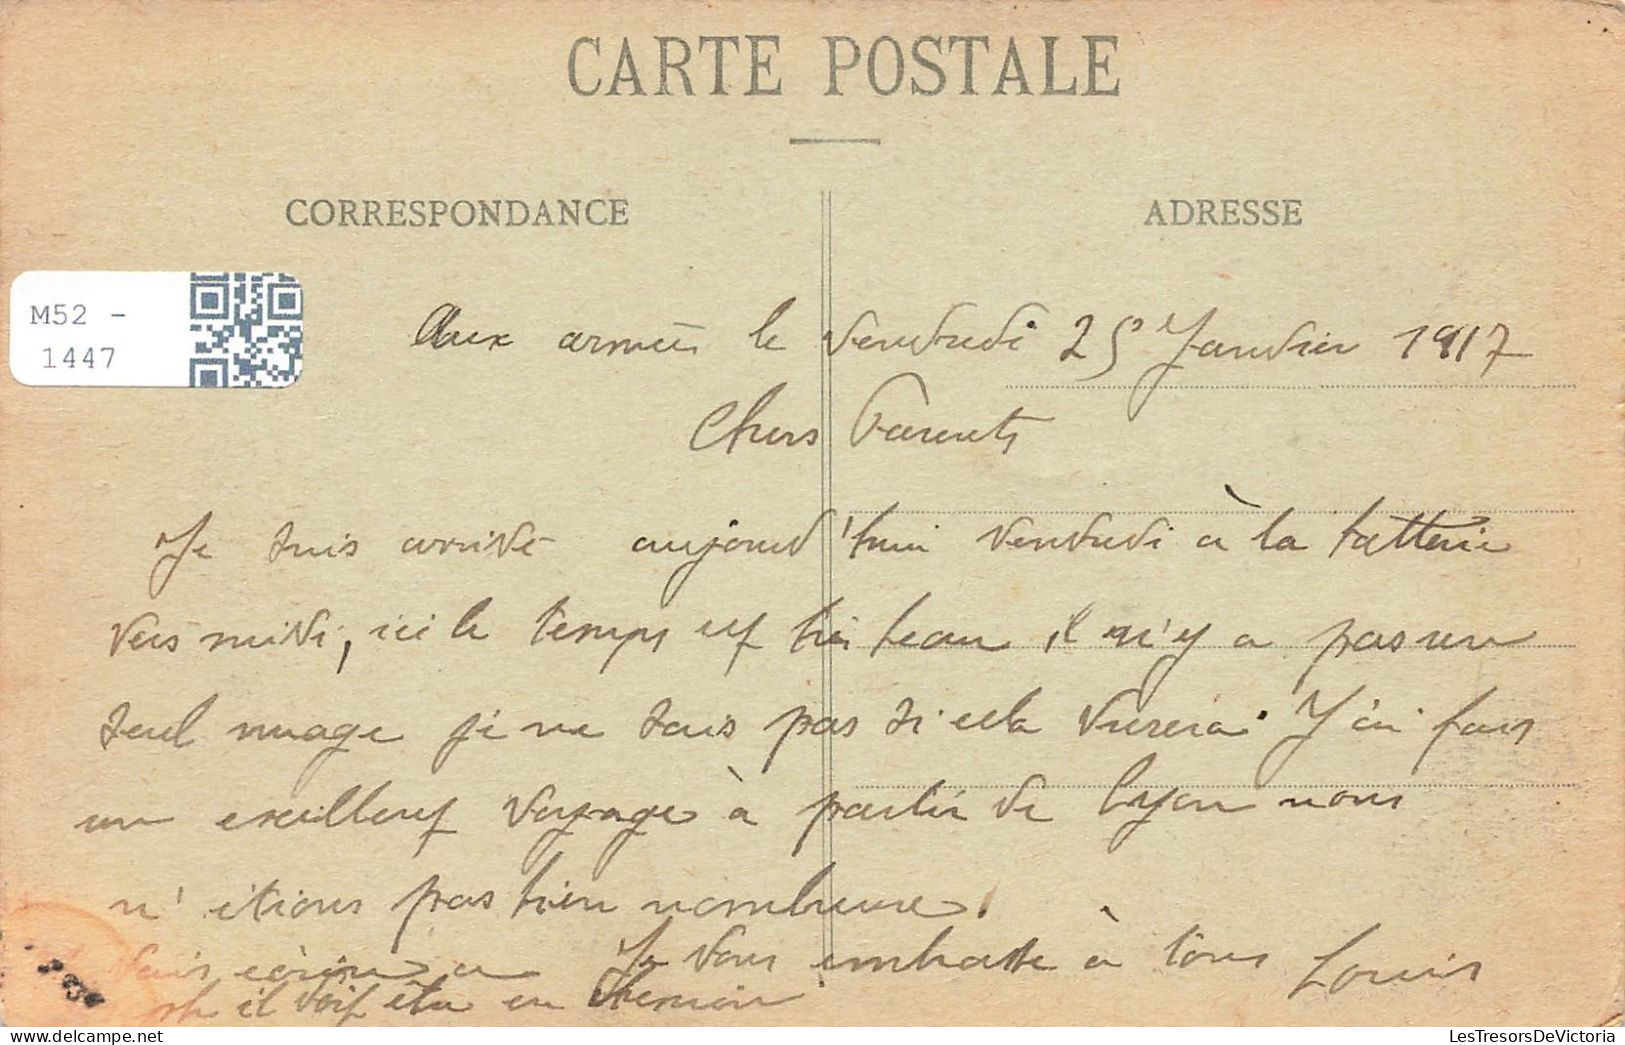 CARTE POSTALE
CORRESPONDANCE
ADRESSE
M52 -
1447
Aux armées le Vendredi 25 Janvier 1917
Chers Parents
Je suis arrivé aujourd'hui vendredi à la batterie
vers midi, ici le temps est très beau il n'y a pas un
seul nuage je ne sais pas si cela durera. J'ai fais
un excellent voyage à partir de Lyon nous
n'étions pas bien nombreux.
vais écrire a Je vous embrasse à tous Louis
il doit être en chemin
LesTresorsDeVictoria